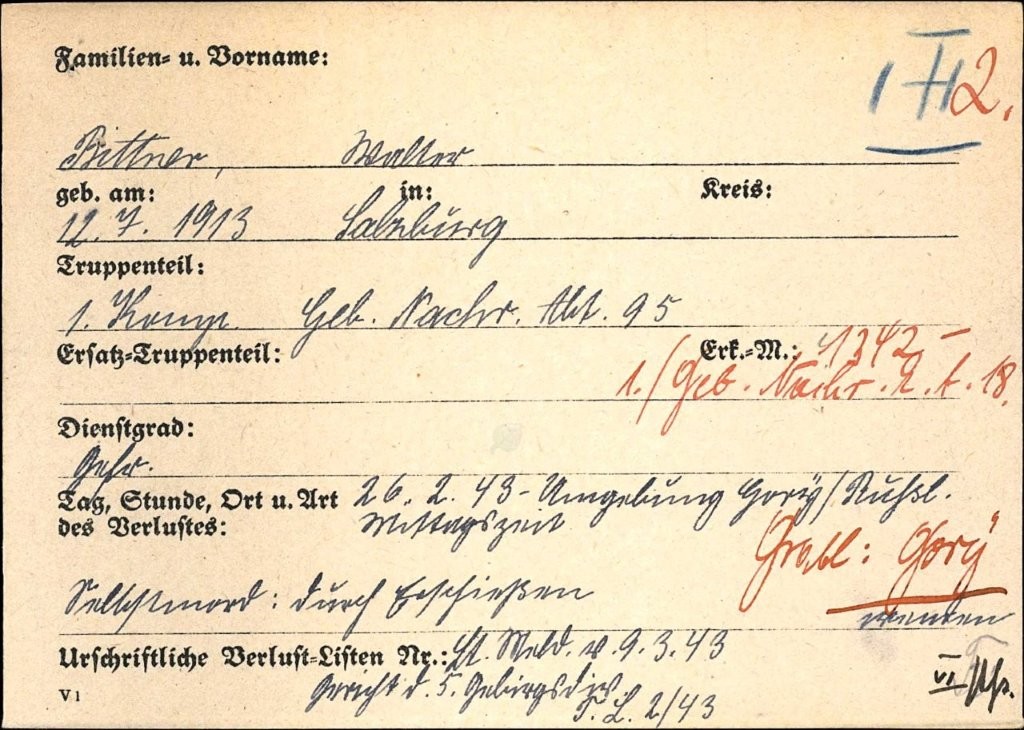 Familien- u. Vorname:
I H 2.
Bittner, Walter
geb. am: in: Kreis:
12. 7. 1913 Salzburg
Truppenteil:
1. Komp. Geb. Nachr. Abt. 95
Ersatz-Truppenteil: Erk.-M.: 1342 –
1./Geb. Nachr. A. 18.
Dienstgrad:
Gefr.
Tag, Stunde, Ort u. Art 26. 2. 43 - Umgebung Gory/Rußl.
des Verlustes: Mittagszeit
Grabl: Gory
Selbstmord: durch Erschießen
wenden
Urschriftliche Verlust-Listen Nr.: Lt. Meld. v. 9. 3. 43
Gericht d. 5. Gebirgsdiv.
V 1 T. L. 2/43
VI